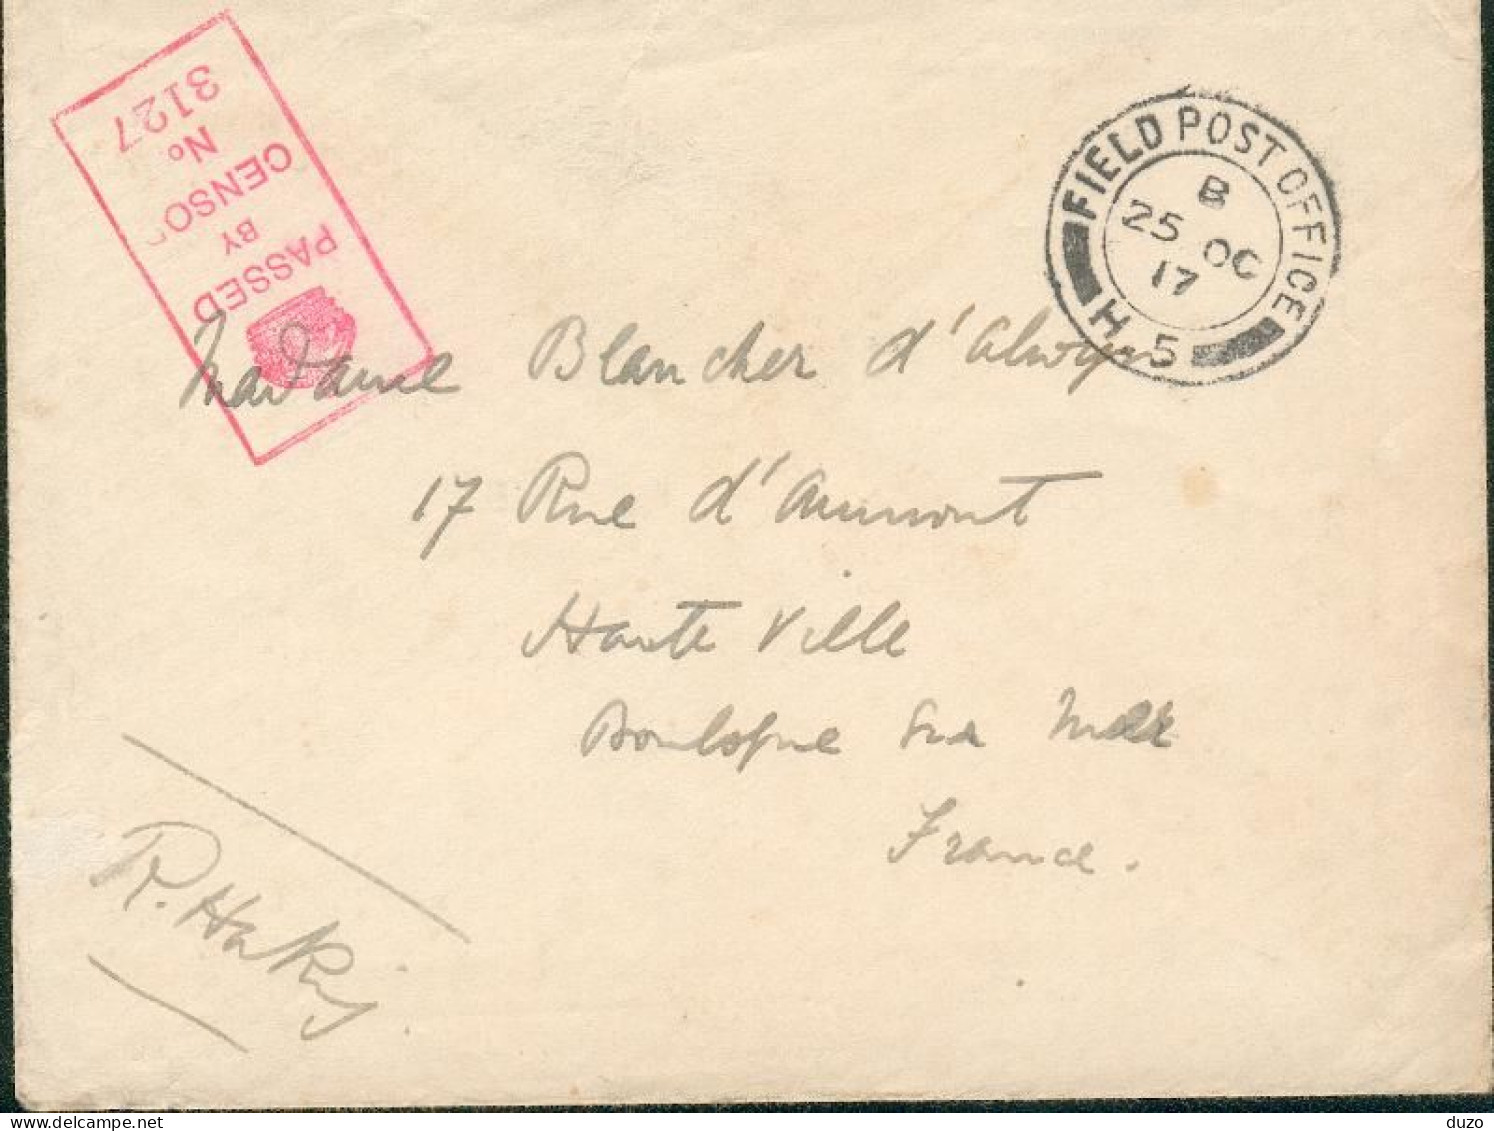 PASSED
BY
CENSO
No
3127
FIELD POST OFFICE
B
25 OC
17
H 5
Madame Blancher d'Alwyn
17 Rue d'Aumont
Haute Ville
Boulogne sur Mer
France.
R. Hakin
delcampe.net
duzo